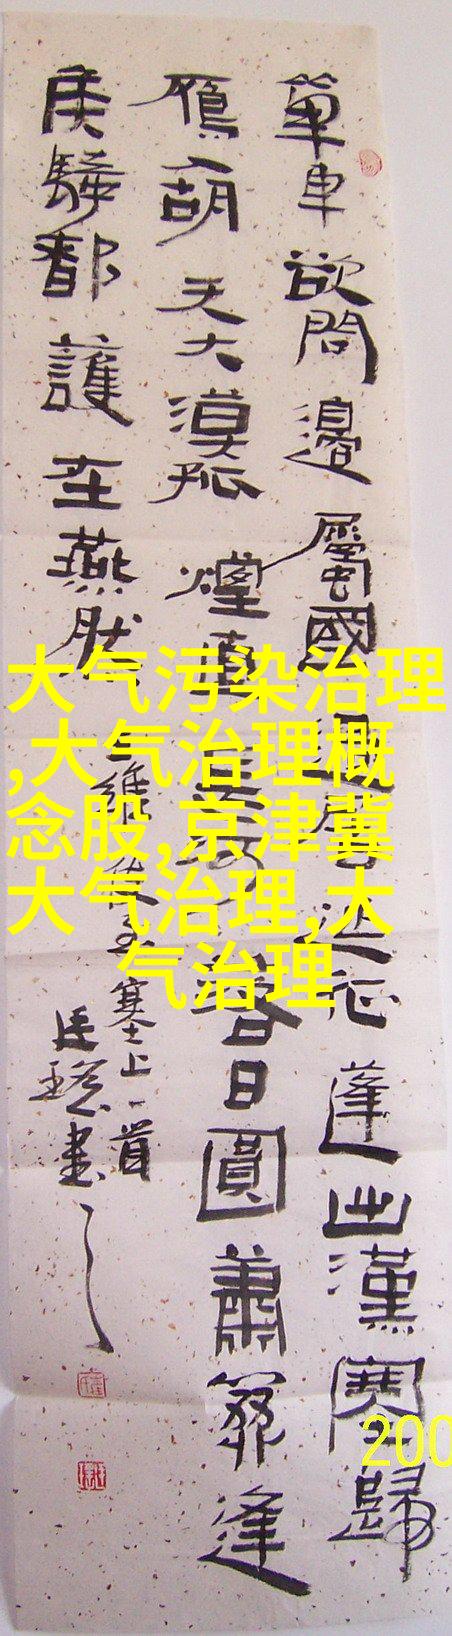 單車欲問邊屬國過居延征蓬出漢塞歸
雁入胡天大漠孤煙直長河落日圓蕭關逢
候騎都護在燕然
王維使至塞上一首
書
大气污染治理
,大气治理概
念股,京津冀
大气治理,大
气治理
200